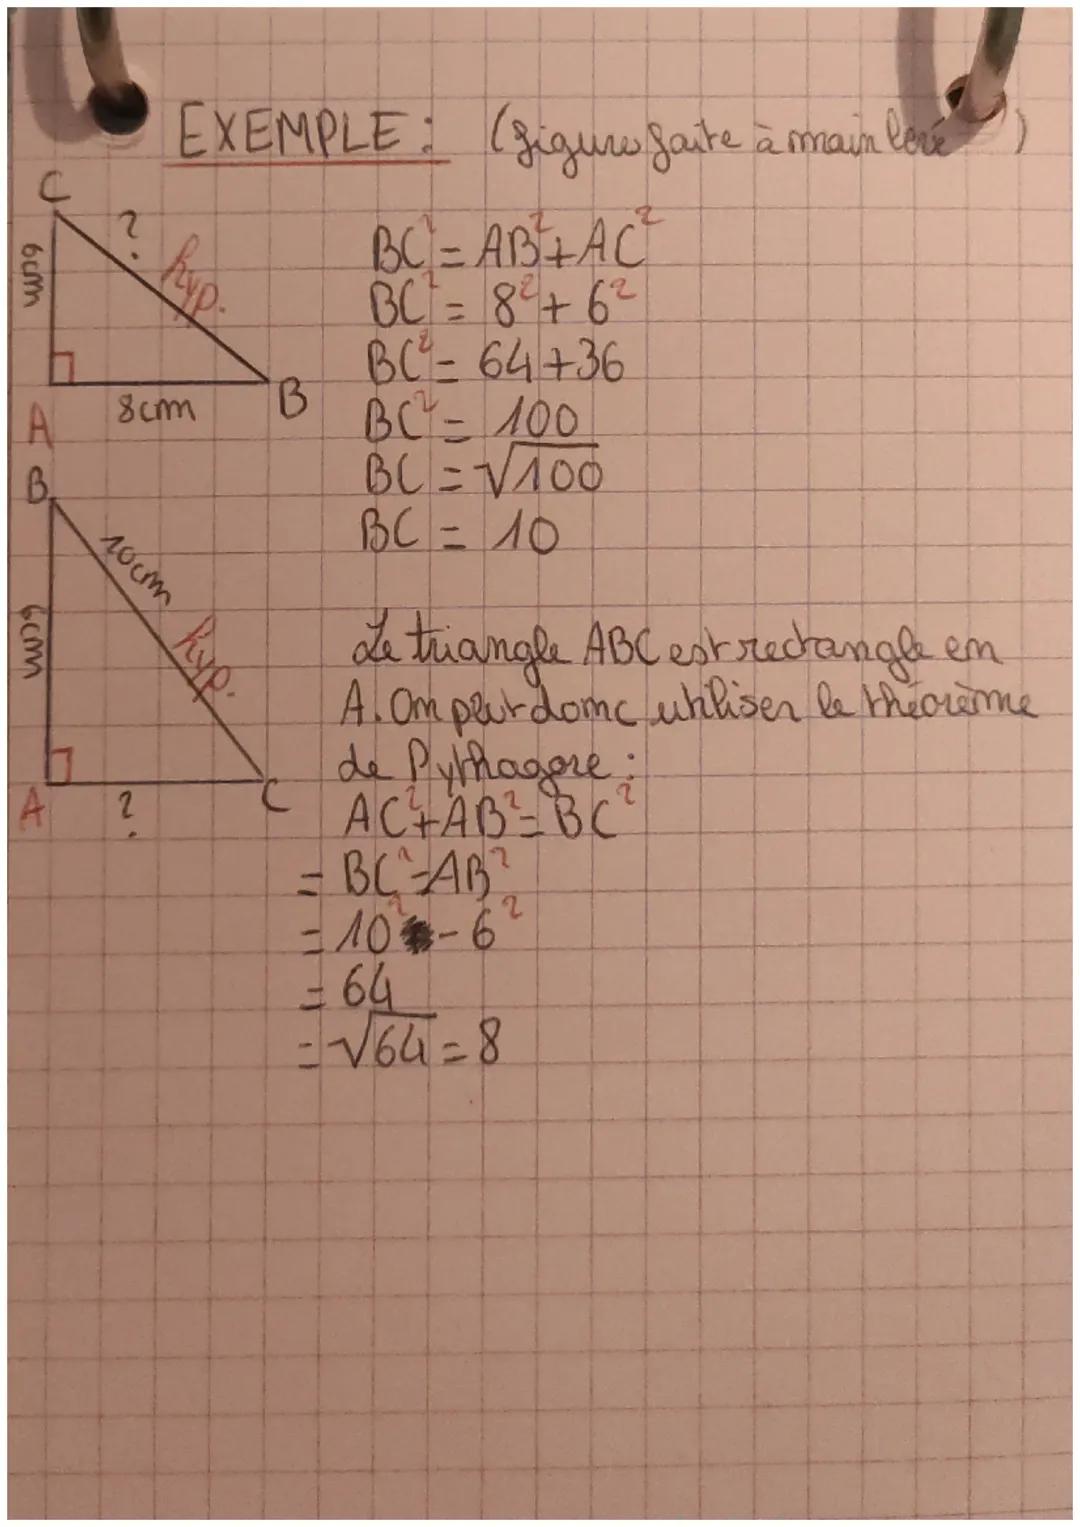 EXEMPLE : (figure faite à main levé )
C
?
hyp.
6cm
8cm
A
B
BC² = AB² + AC²
BC² = 8² + 6²
BC² = 64 + 36
BC² = 100
BC = √100
BC = 10
B
10cm
hyp.
6cm
A
?
C
Le triangle ABC est rectangle en
A. On peut donc utiliser le théorème
de Pythagore :
AC² + AB² = BC²
= BC² - AB²
= 10² - 6²
= 64
= √64 = 8